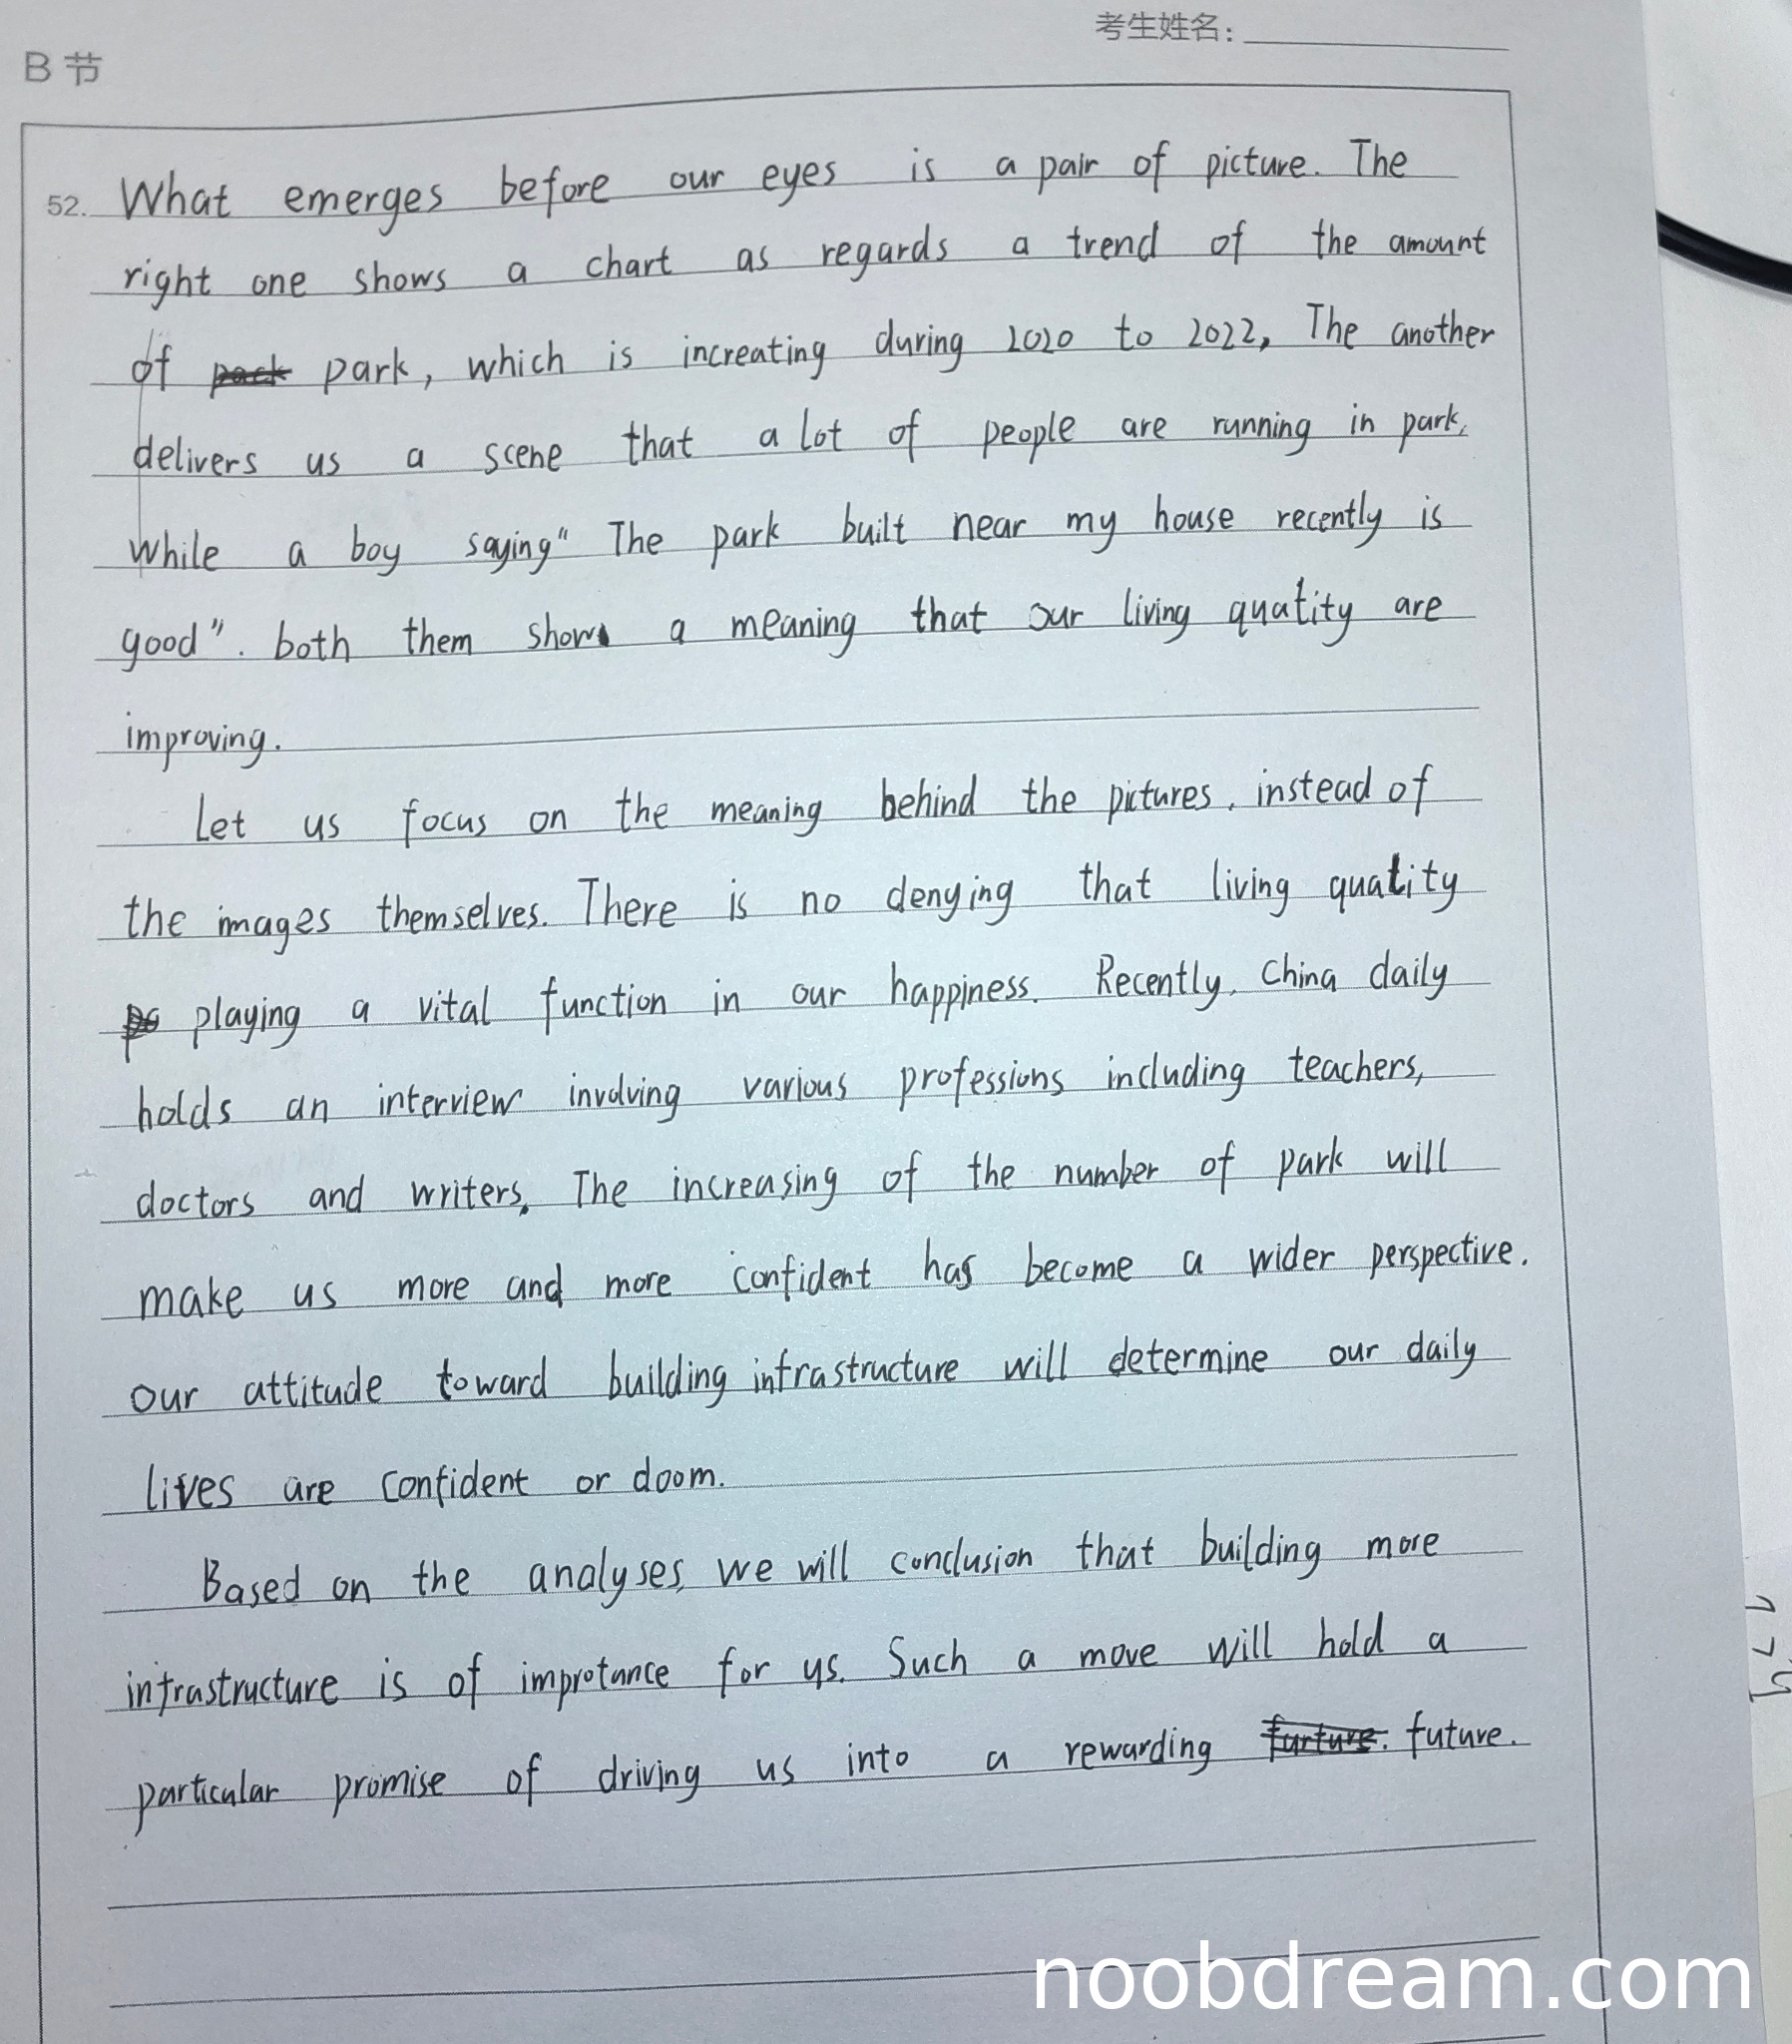 考生姓名:
B 节
52. What emerges before our eyes is a pair of picture. The
right one shows a chart as regards a trend of the amount
of pack park, which is increating during 2020 to 2022, The another
delivers us a scene that a lot of people are running in park,
while a boy saying" The park built near my house recently is
good". both them show a meaning that our living quatity are
improving.
Let us focus on the meaning behind the pictures, instead of
the images themselves. There is no denying that living quality
playing a vital function in our happiness. Recently, China daily
holds an interview involving various professions including teachers,
doctors and writers, The increasing of the number of park will
make us more and more confident has become a wider perspective.
our attitude toward building infrastructure will determine our daily
lives are confident or doom.
Based on the analyses, we will conclusion that building more
infrastructure is of improtance for us. Such a move will hold a
particular promise of driving us into a rewarding furture. future.
noobdream.com